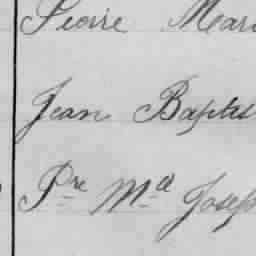 Pierre Mari
Jean Baptis
Pre Md Joseph